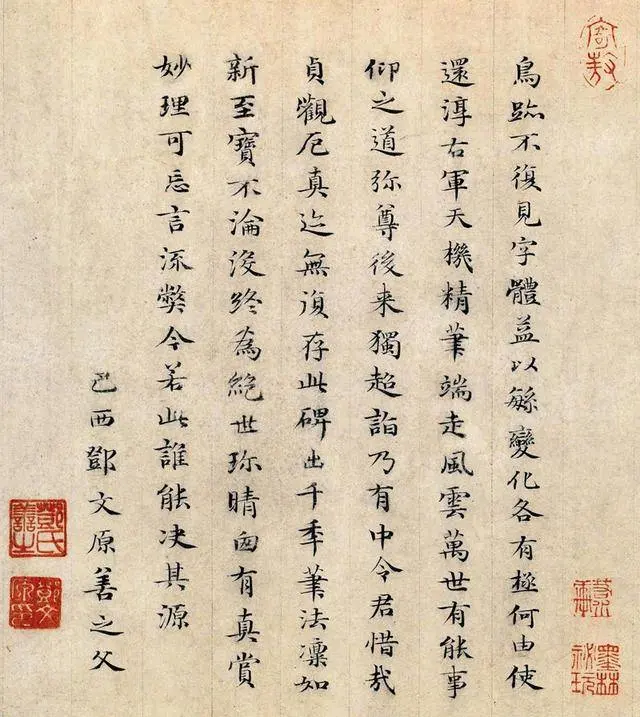 鳥跡不復見字體益以緐變化各有極何由使
還淳右軍天機精筆端走風雲萬世有能事
仰之道弥尊後来獨超詣乃有中令君惜哉
貞觀厄真迹無復存此碑出千季筆法凛如
新至寶不淪没終為絶世珍晴囱有真賞
妙理可忘言流弊今若此誰能决其源
己酉鄧文原善之父
墨林祕玩